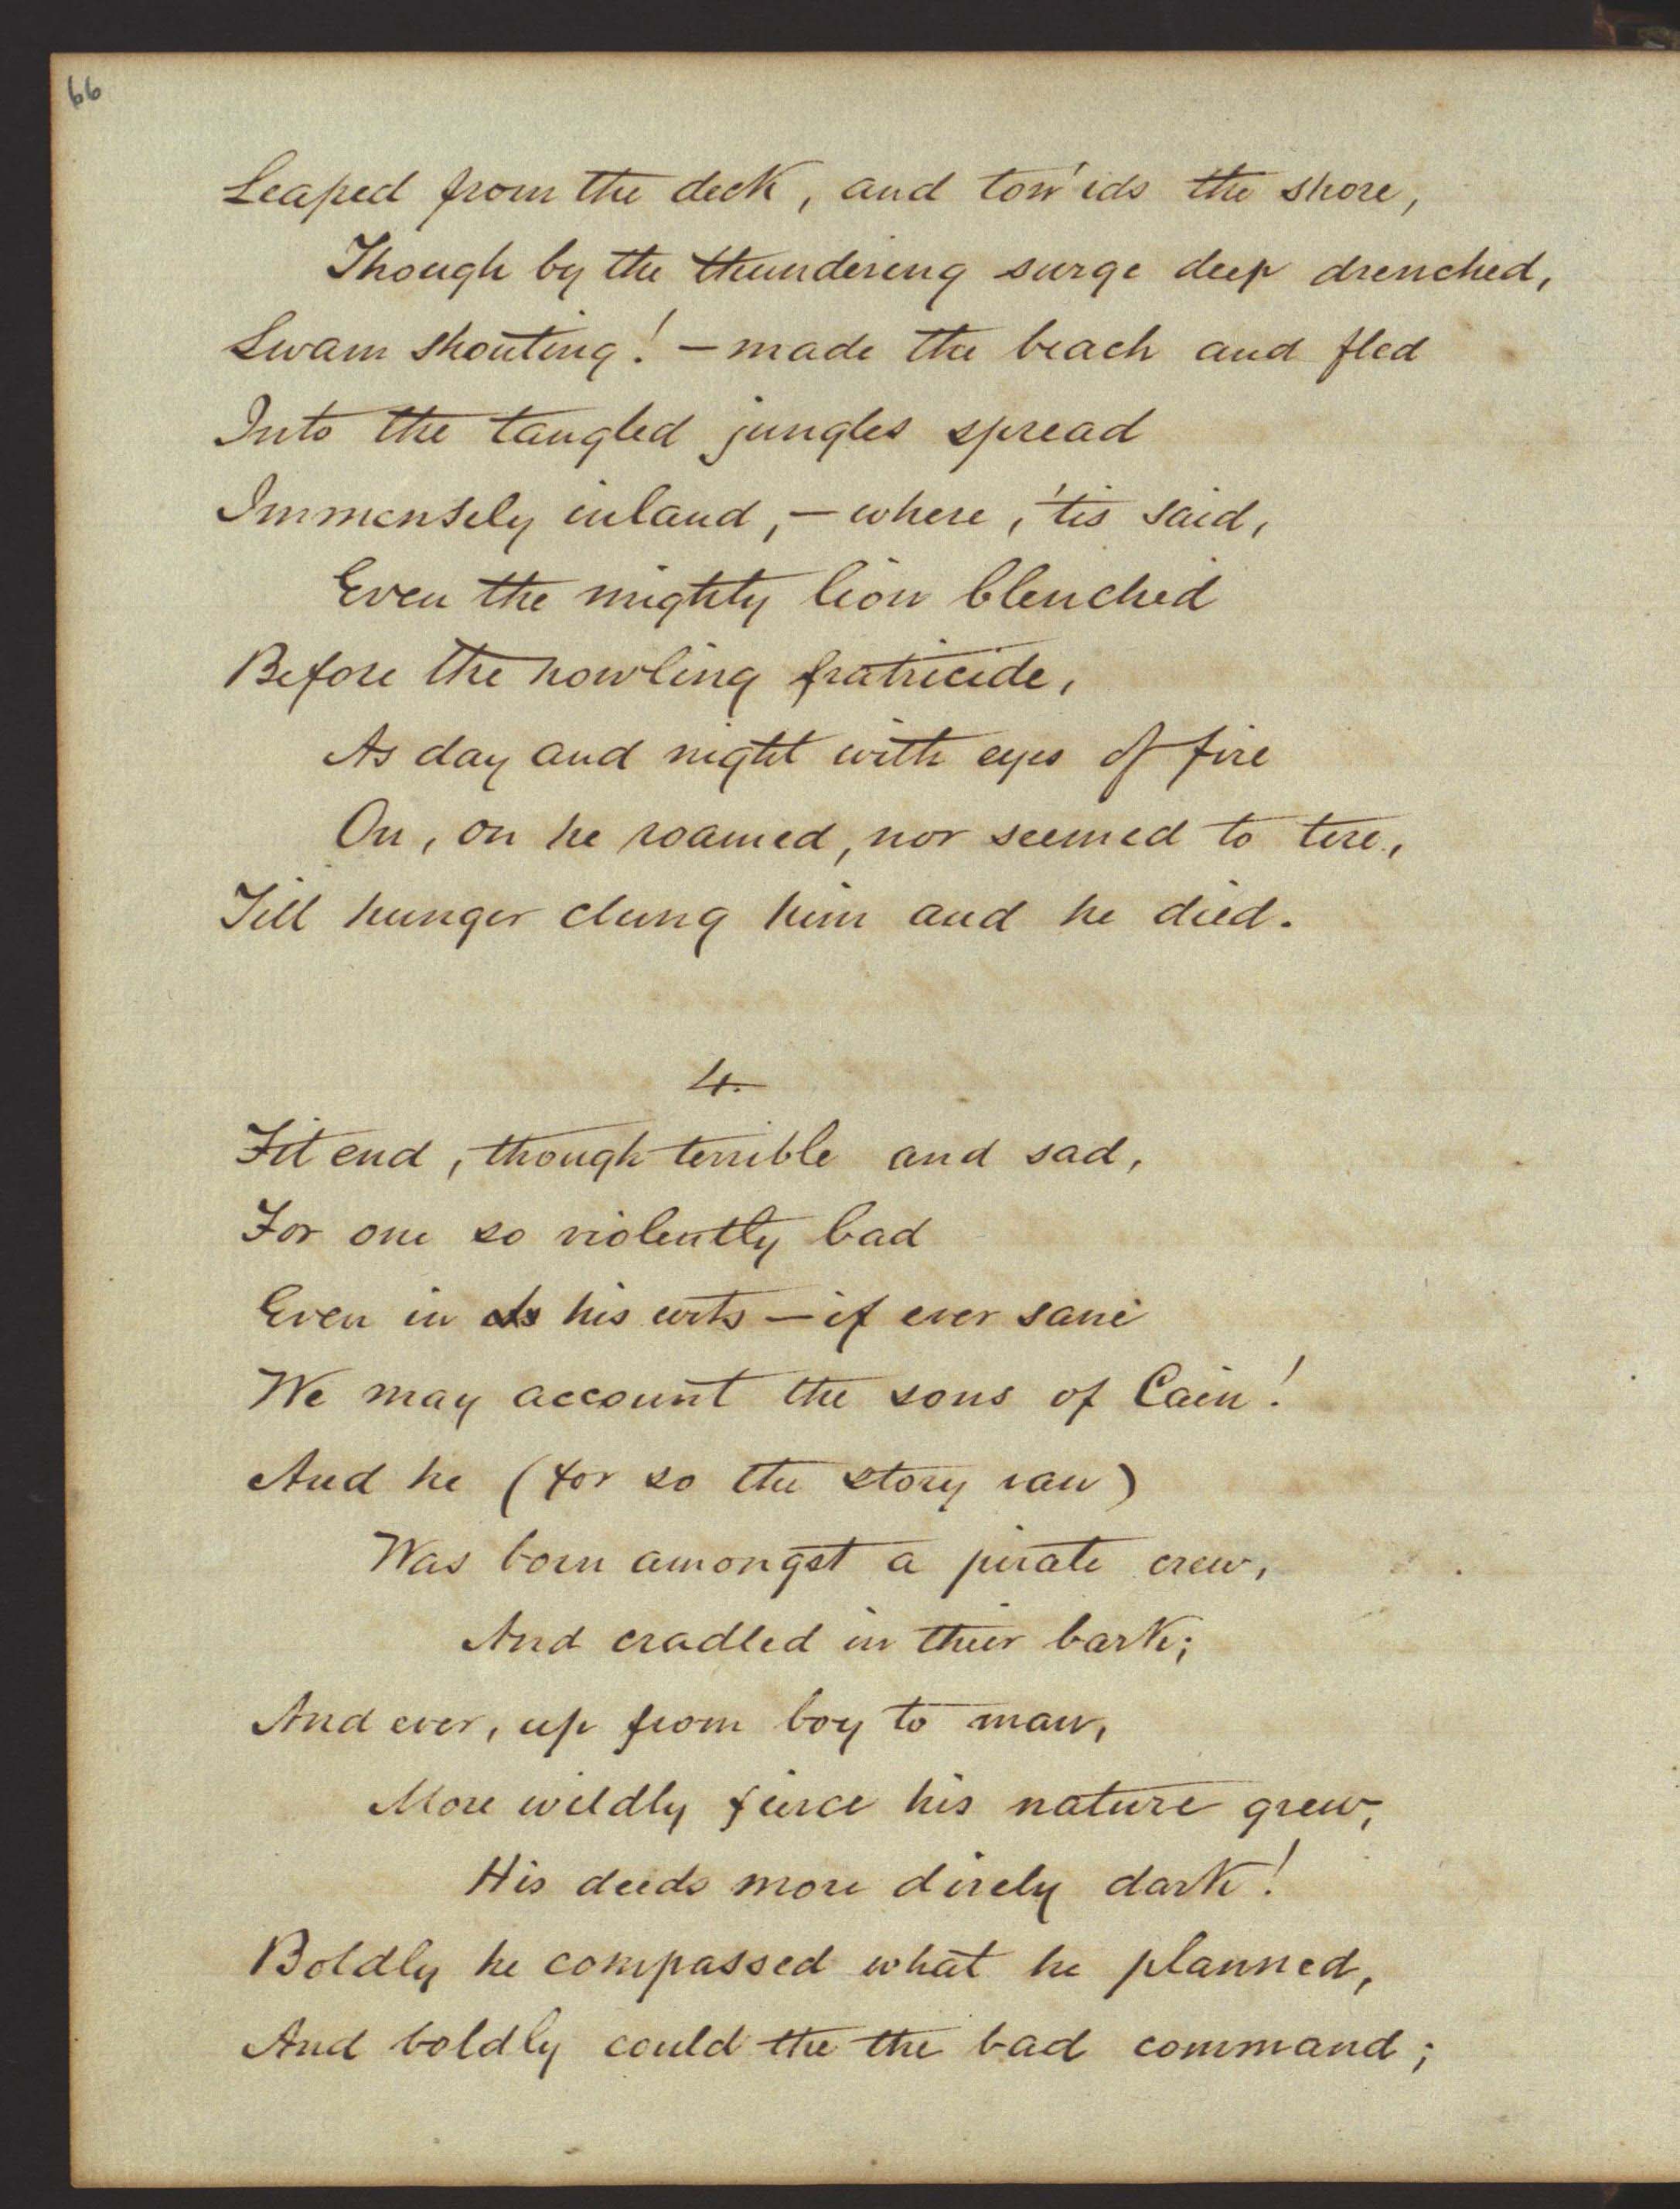 66
Leaped from the deck, and tow'ids the shore,
Though by the thundering surge deep drenched,
Swam shouting! – made the beach and fled
Into the tangled jungles spread
Immensely inland, – where, 'tis said,
Even the mighty lion blenched
Before the howling fratricide,
As day and night with eyes of fire
On, on he roamed, nor seemed to tire,
Till hunger clung him and he died.
4.
Fit end, though terrible and sad,
For one so violently bad
Even in his wits – if ever sane
We may account the sons of Cain!
And he (for so the story ran)
Was born amongst a pirate crew,
And cradled in their bark;
And ever, up from boy to man,
More wildly fierce his nature grew,
His deeds more direly dark!
Boldly he compassed what he planned,
And boldly could the the bad command;